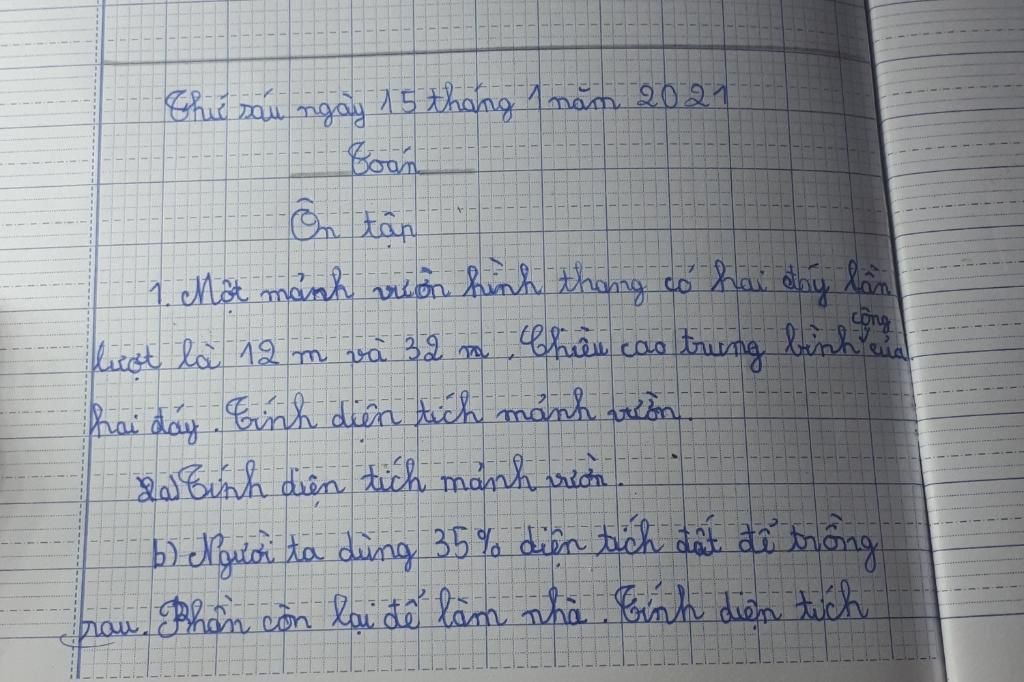 Thứ sáu ngày 15 tháng 1 năm 2021
Toán
Ôn tập
1. Một mảnh vườn hình thang có hai đáy lần
lượt là 12 m và 32 m. Chiều cao trung bình cộng của
hai đáy. Tính diện tích mảnh vườn.
a) Tính diện tích mảnh vườn.
b) Người ta dùng 35% diện tích đất để trồng
rau. Phần còn lại để làm nhà. Tính diện tích